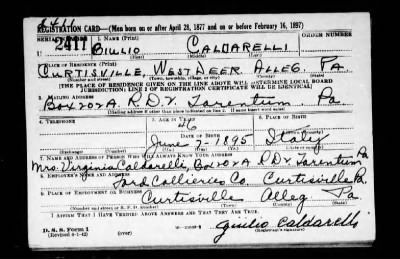 REGISTRATION CARD—(Men born on or after April 28, 1877 and on or before February 16, 1897)
SERIAL NUMBER 1. NAME (Print) ORDER NUMBER
U 2411 GIULIO CALDARELLI
(First) (Middle) (Last)
2. PLACE OF RESIDENCE (Print)
CURTISVILLE, WEST DEER ALLEG. PA.
(Number and street) (Town, township, village, or city) (County) (State)
[THE PLACE OF RESIDENCE GIVEN ON THE LINE ABOVE WILL DETERMINE LOCAL BOARD
JURISDICTION; LINE 2 OF REGISTRATION CERTIFICATE WILL BE IDENTICAL]
3. MAILING ADDRESS
Box 207 A R.D.Y. Tarentum Pa
(Mailing address if other than place indicated on line 2. If same insert word same)
4. TELEPHONE 5. AGE IN YEARS 6. PLACE OF BIRTH
46
DATE OF BIRTH
June 7 1895 Italy
(Mo.) (Day) (Yr.)
7. NAME AND ADDRESS OF PERSON WHO WILL ALWAYS KNOW YOUR ADDRESS
Mrs. Virginia Caldarelli, Box 207 A R.D.Y. Tarentum Pa
8. EMPLOYER'S NAME AND ADDRESS
Ford Collieries Co. Curtisville Pa.
9. PLACE OF EMPLOYMENT OR BUSINESS
Curtisville Alleg. Pa.
(Number and street or R. F. D. number) (Town) (County) (State)
I AFFIRM THAT I HAVE VERIFIED ABOVE ANSWERS AND THAT THEY ARE TRUE.
D. S. S. Form 1
(Revised 4-1-42)
Giulio Caldarelli
(Registrant's signature)